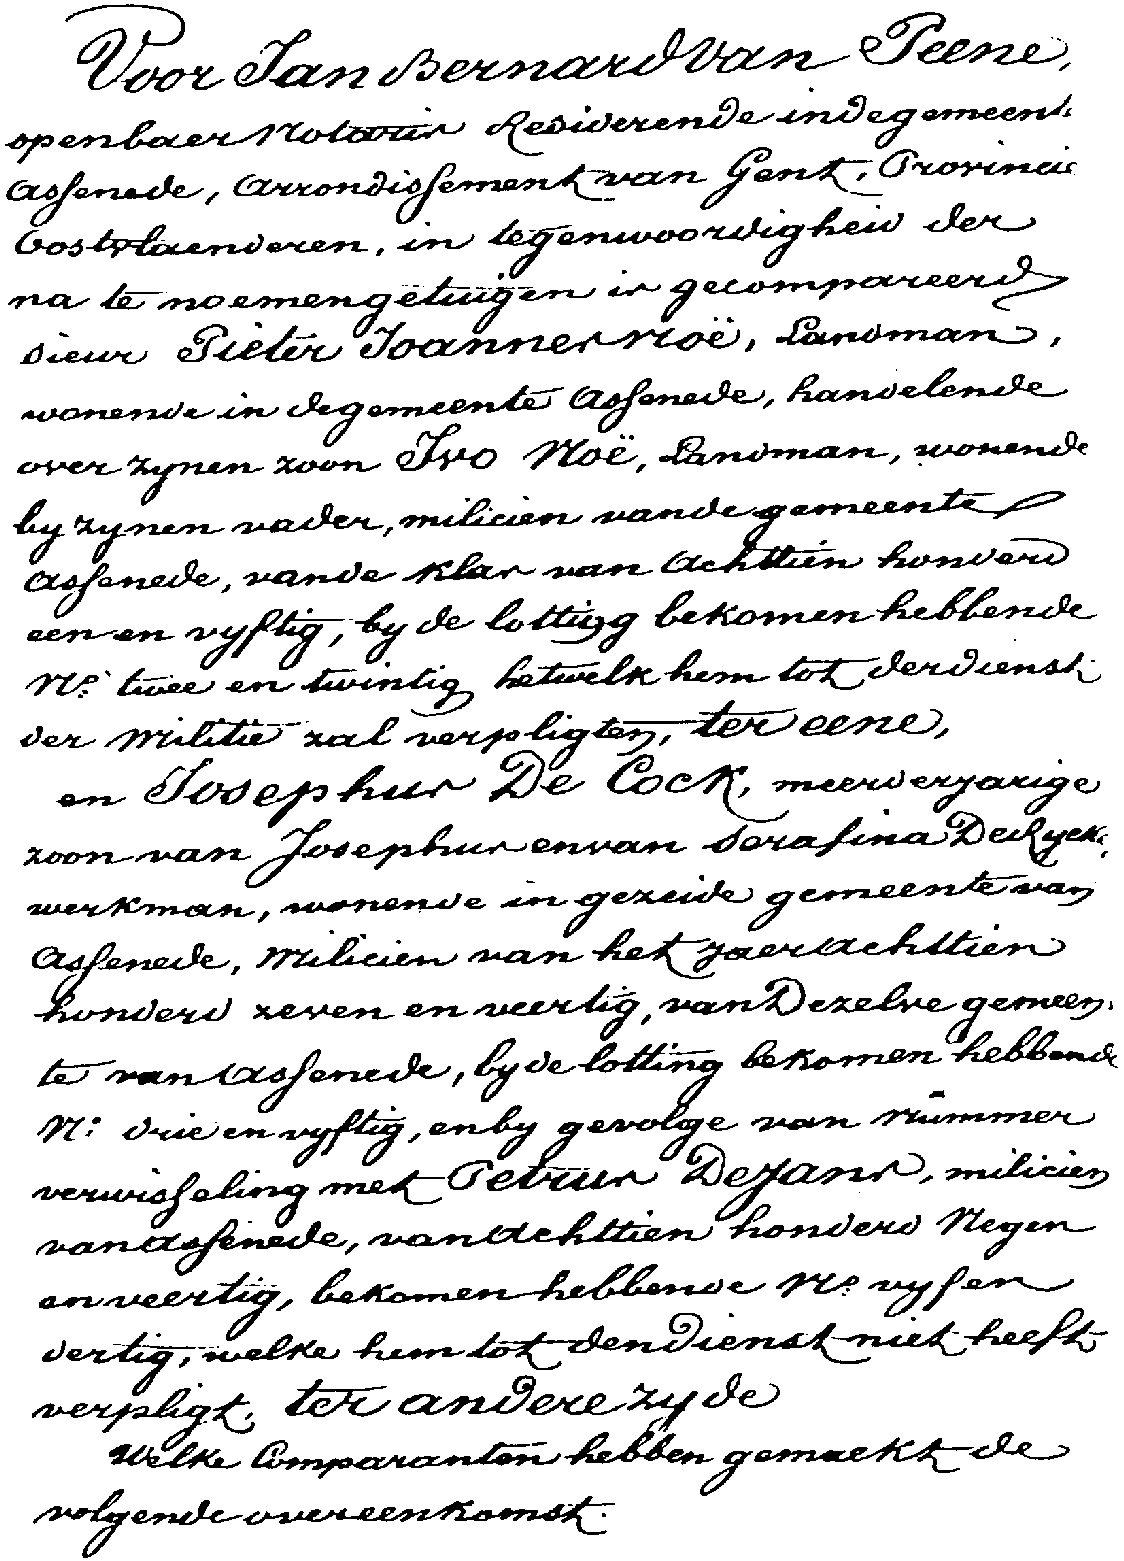 Voor Jan Bernard Van Peene,
openbaer Notaris Residerende in de gemeente
Assenede, Arrondissement van Gent, Provincie
Oostvlaenderen, in tegenwoordigheid der
na te noemen getuigen is gecompareerd
sieur Pieter Joannes Noë, Landman,
wonende in de gemeente Assenede, handelende
over zynen zoon Ivo Noë, Landman, wonende
by zynen vader, milicien van de gemeente
Assenede, van de klas van Achttien honderd
een en vyftig, by de lotting bekomen hebbende
N° twee en twintig hetwelk hem tot der dienst
der Militie zal verpligten, ter eene,
en Josephus De Cock, meerderjarige
zoon van Josephus en van Serafina De Rycke,
werkman, wonende in gezeide gemeente van
Assenede, Milicien van het jaer achttien
honderd zeven en veertig, van Dezelve gemeen-
te van Assenede, by de lotting bekomen hebbende
N° drie en vyftig, en by gevolge van Nummer
verwisseling met Petrus De Jans, milicien
van Assenede, van Achttien honderd Negen
en veertig, bekomen hebbende N° vyf en
dertig, welke hem tot den Dienst niet heeft
verpligt, ter andere zyde
Welke Comparanten hebben gemaekt de
volgende overeenkomst.